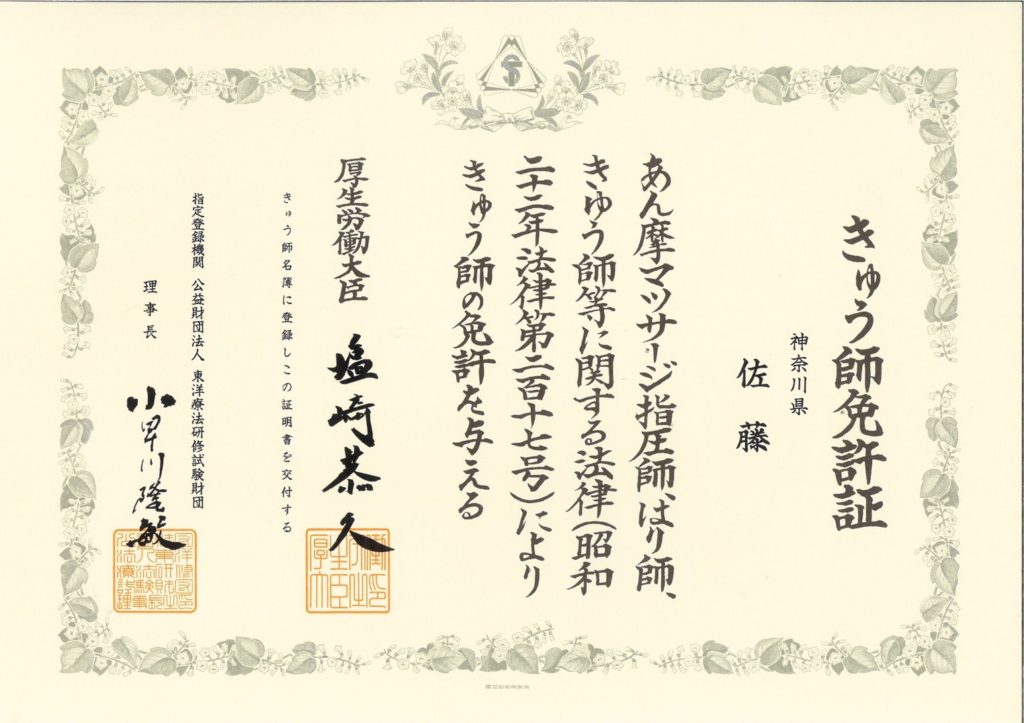 きゅう師免許証
神奈川県
佐藤
あん摩マツサージ指圧師、はり師、
きゆう師等に関する法律(昭和
二十二年法律第二百十七号)により
きゅう師の免許を与える
厚生労働大臣 塩崎恭久
きゅう師名簿に登録しこの証明書を交付する
指定登録機関 公益財団法人 東洋療法研修試験財団
理事長 小早川隆敏